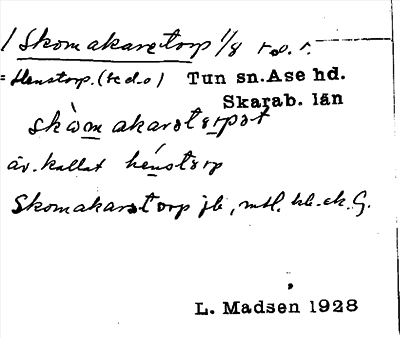 / Skomakaretorp 1/8 r.s.r.
= Henstorp. (se d.o) Tun sn. Ase hd.
Skarab. län
skòmakarstorpət
äv. kallat hénstorp
Skomakarstorp jb, mtl. hb. ek. G.
L. Madsen 1928